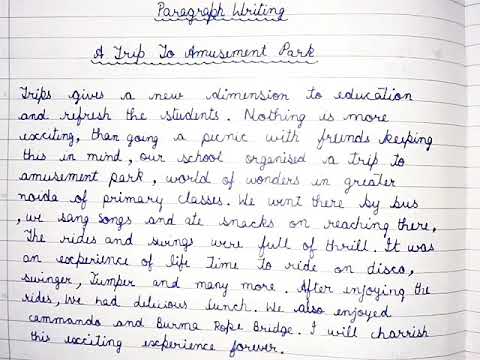 Paragraph Writing
A Trip To Amusement Park
Trips gives a new dimension to education
and refresh the students. Nothing is more
exciting, than going a picnic with freinds keeping
this in mind, our school organised a trip to
amusement park, world of wonders in greater
noida of primary classes. We went there by bus
, we sang songs and ate snacks on reaching there,
The rides and swings were full of thrill. It was
an experience of life Time To ride on disco,
swinger, Jumper and many more. After enjoying the
rides, We had delicious lunch. We also enjoyed
commando and Burma Rope Bridge. I will charrish
this exciting experience forever.